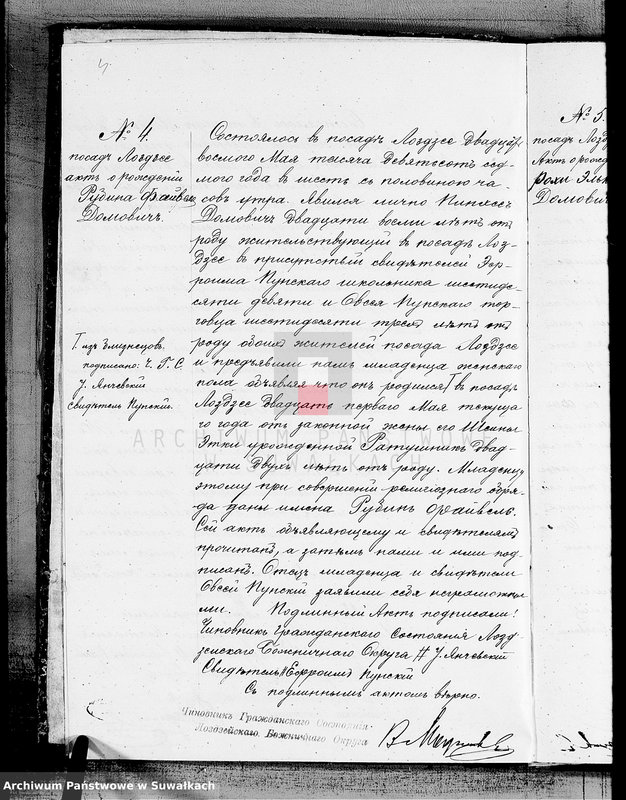 4
№ 4.
посадъ Лоздзее
актъ о рожденіи
Рубина Файвеля
Домовичъ.
1 изъ близнецовъ.
подписано: Ч. Г. С.
У. Янчевскій
Свидѣтель Пунскій.
Состоялось въ посадѣ Лоздзее двадцать
восьмого Мая тысяча девятьсотъ седь-
мого года въ шесть съ половиною ча-
совъ утра. Явился лично
Домовичъ двадцати восьми лѣтъ отъ
роду жительствующій въ посадѣ Лоз-
дзее въ присутствіи свидѣтелей Эф-
роима Пунскаго школьника шестиде-
сяти девяти и Овсея Пунскаго тор-
говца шестидесяти трехъ лѣтъ отъ
роду обоихъ жителей посада Лоздзее
и предъявилъ намъ младенца женскаго
пола объявляя что онъ родился въ посадѣ
Лоздзее двадцать перваго Мая текуща-
го года отъ законной жены его Шейны
Этки урожденной Ратушникъ двад-
цати двухъ лѣтъ отъ роду. Младенцу
этому при совершеніи религіознаго обря-
да даны имена Рубинъ Файвель.
Сей актъ объявляющему и свидѣтелямъ
прочитанъ, а затѣмъ нами и ими под-
писанъ. Отецъ младенца и свидѣтель
Овсей Пунскій заявили себя неграмотны-
ми. Подлинный Актъ подписали:
Чиновникъ Гражданскаго Состоянія Лозд-
зейскаго Божничнаго Округа // У. Янчевскій
Свидѣтель // Ефроимъ Пунскій
Съ подлиннымъ актомъ вѣрно.
Чиновникъ Гражданскаго Состоянія
Лоздзейскаго Божничнаго Округа
№ 5.
посадъ Лозд
Актъ о рожде
Рохи Эльк
Домович
ARCHIWUM PAŃSTWOWE
W SUWAŁKACH
Archiwum Państwowe w Suwałkach